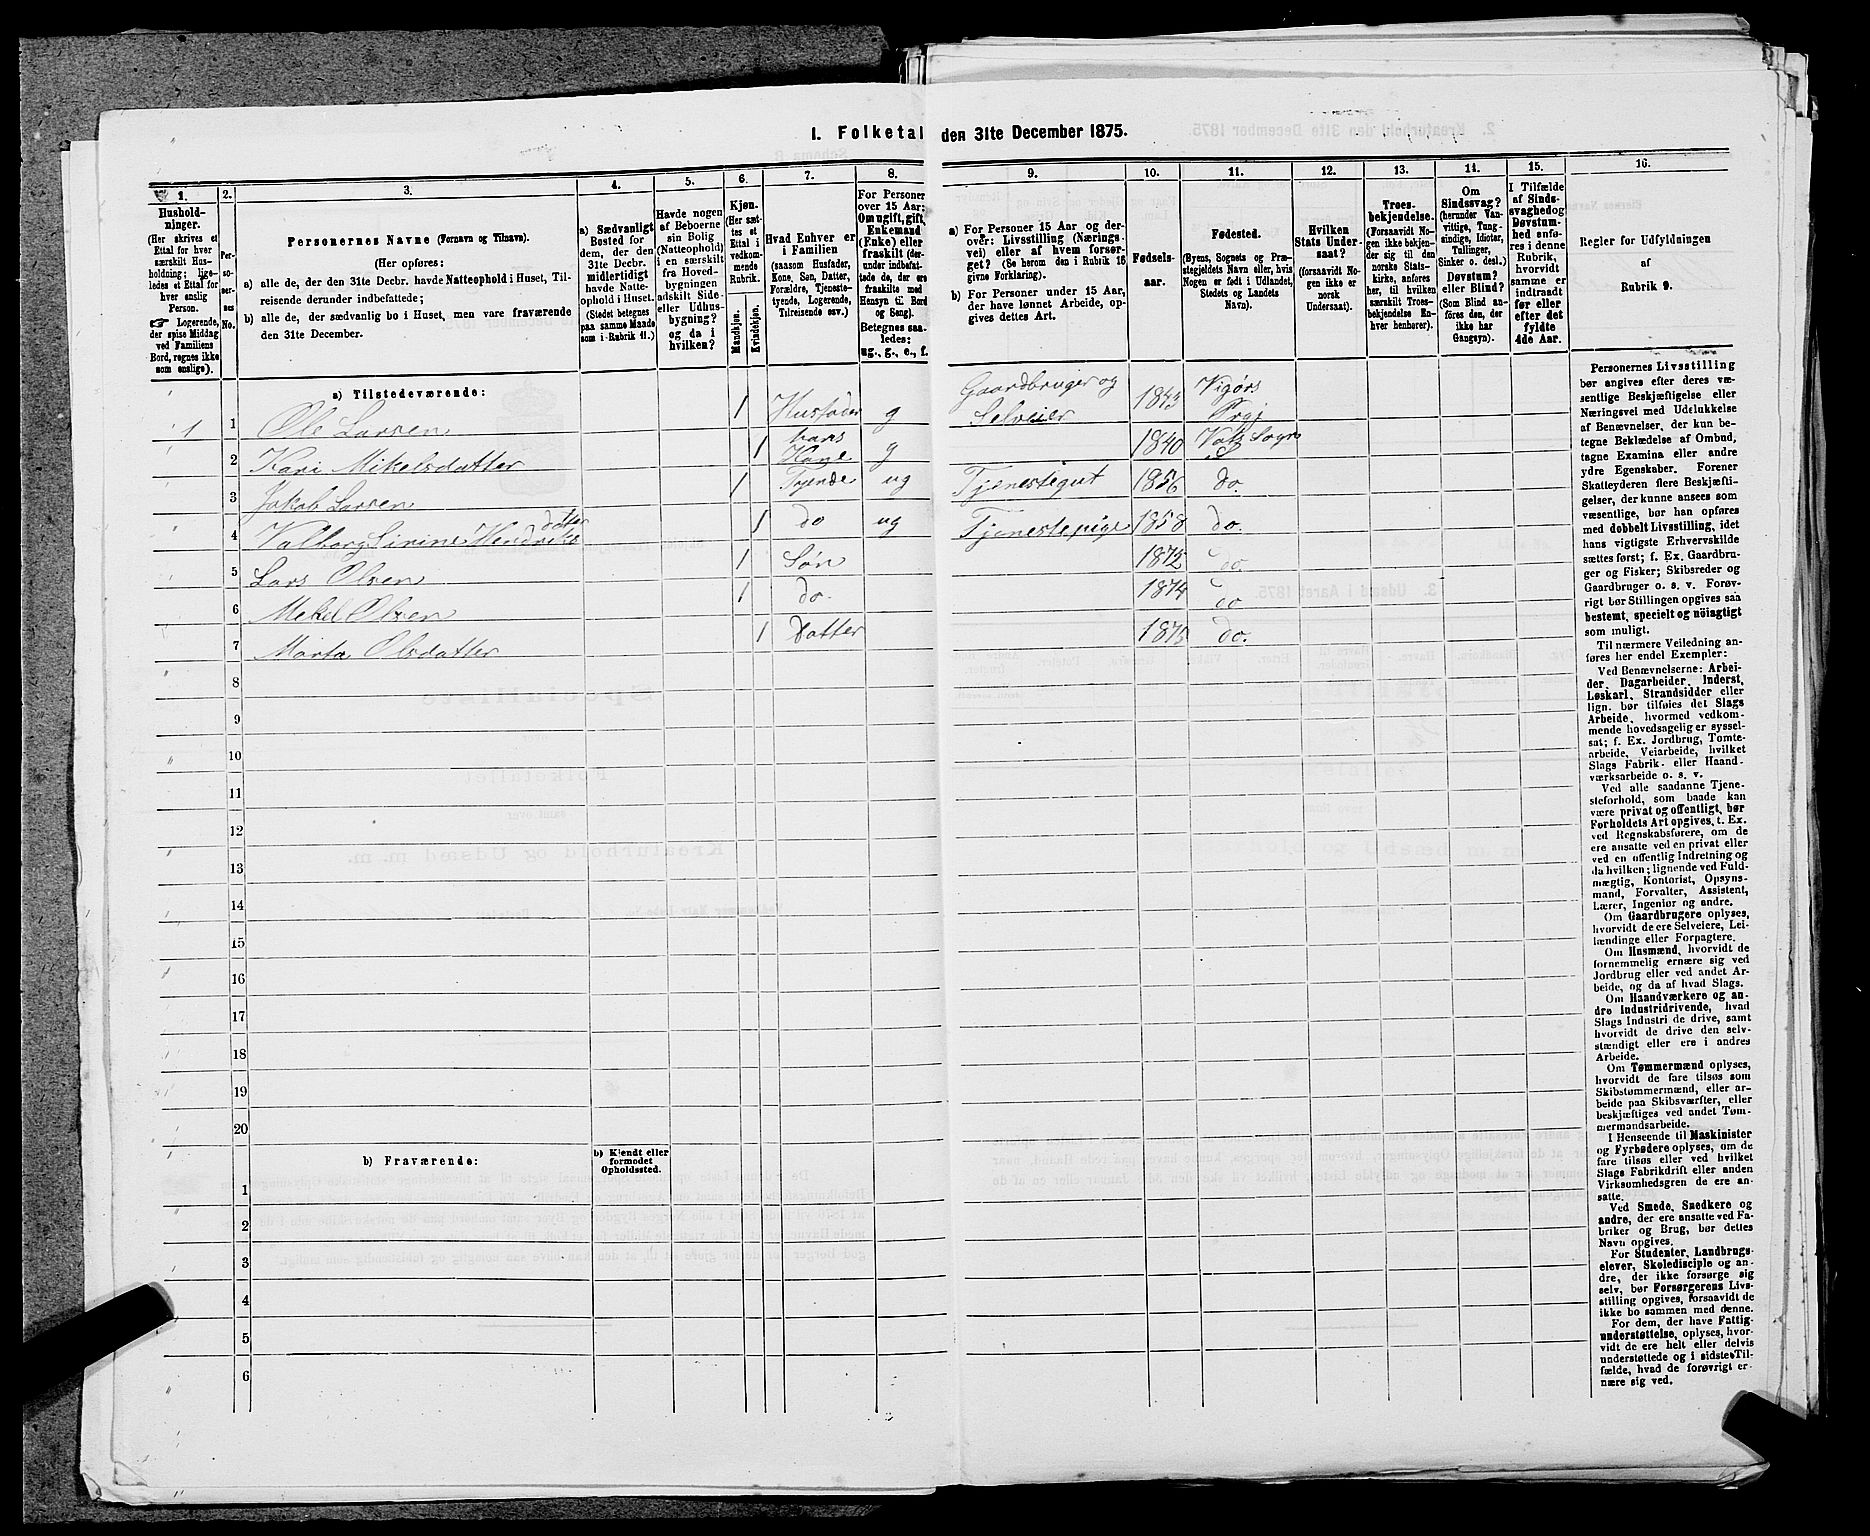 1. Folketal den 31te December 1875.
1. 2. 3. 4. 5. 6. 7. 8. 9. 10. 11. 12. 13. 14. 15. 16.
Hushold-
ninger.
(Her skrives et
Ettal for hver
særskilt Hus-
holdning; lige-
ledes et Ettal for
hver enslig
Person.
☞ Logerende,
der spise Middag
ved Familiens
Bord, regnes ikke
som enslige).
Per-
so-
ner-
nes
No.
Personernes Navne (Fornavn og Tilnavn).
(Her opføres:
a) alle de, der den 31te Decbr. havde Natteophold i Huset, Til-
reisende derunder indbefattede;
b) alle de, der sædvanlig bo i Huset, men vare fraværende
den 31te December.
a) Sædvanligt
Bosted for
dem, der den
31te Decbr.
midlertidigt
havde Natte-
ophold i Huset.
(Stedet betegnes
paa samme Maade
som i Rubrik 11.)
Havde nogen
af Beboerne
sin Bolig
(Natteophold)
i en særskilt
fra Hoved-
bygningen
adskilt Side-
eller Udhus-
bygning?
og da i
hvilken?
Kjøn.
(Her sæt-
tes et
Ettal i
vedkom-
mende
Rubrik.
Mandkjøn.
Kvindekjøn.
Hvad Enhver er
i Familien
(saasom Husfader,
Kone, Søn, Datter,
Forældre, Tjeneste-
tyende, Logerende,
Tilreisende osv.)
For Personer
over 15 Aar:
Om ugift, gift,
Enkemand
(Enke) eller
fraskilt (der-
under indbefat-
tede de, der ere
fraskilte med
Hensyn til Bord
og Seng).
Betegnes saa-
ledes:
ug., g., e., f.
a) For Personer 15 Aar og der-
over: Livsstilling (Nærings-
vei) eller af hvem forsør-
get? (Se herom den i Rubrik 16
givne Forklaring).
b) For Personer under 15 Aar,
der have lønnet Arbeide, op-
gives dettes Art.
Fødsels-
aar.
Fødested.
(Byens, Sognets og Præ-
stegjeldets Navn eller, hvis
Nogen er født i Udlandet,
Stedets og Landets
Navn).
Hvilken
Stats Under-
saat?
(forsaavidt No-
gen ikke er
norsk
Undersaat).
Troes-
bekjendelse.
(Forsaavidt No-
gen ikke bekjen-
der sig til den
norske Stats-
kirke, anføres
her, til hvilken
særskilt Troes-
bekjendelse En-
hver henhører).
Om
Sindssvag?
(herunder Van-
vittige, Tung-
sindige, Idioter,
Tullinger,
Sinker o. desl.)
Døvstum?
eller Blind?
(Som Blind an-
føres den, der
ikke har
Gangsyn).
I Tilfælde
af Sinds-
svaghed og
Døvstum-
hed anfø-
res i denne
Rubrik,
hvorvidt
samme er
indtraadt
før eller
efter det
fyldte
4de Aar.
Regler for Udfyldningen
af
Rubrik 9.
a) Tilstedeværende:
1 1 Ole Larsen 1 Husfader g Gaardbruger og Selveier 1843
2 Kari Mikelsdatter 1 hans Kone g 1840 Vats Sogn
3 Jakob Larsen 1 Tyende ug Tjenestegut 1856 do.
4 Valborg Sirine Hendriksdatter 1 do ug Tjenestepige 1858 do.
5 Lars Olsen 1 Søn 1872 do.
6 Mekel Olsen 1 do. 1874 do
7 Marta Olsdatter 1 Datter 1875 do.
8
9
10
11
12
13
14
15
16
17
18
19
20
b) Fraværende:
b) Kjendt eller
formodet
Opholdssted.
1
2
3
4
5
6
Personernes Livsstilling
bør angives efter deres væ-
sentlige Beskjæftigelse eller
Næringsvei med Udelukkelse
af Benævnelser, der kun be-
tegne Beklædelse af Ombud,
tagne Examina eller andre
ydre Egenskaber. Forener
Skatteyderen flere Beskjæfti-
gelser, der kunne ansees som
væsentlige, bør han opføres
med dobbelt Livsstilling, idet
hans vigtigste Erhvervskilde
sættes først; f. Ex. Gaardbru-
ger og Fisker; Skibsreder og
Gaardbruger o. s. v. Forøv-
rigt bør Stillingen opgives saa
bestemt, specielt og nöiagtigt
som muligt.
Til nærmere Veiledning an-
føres her endel Exempler:
Ved Benævnelserne: Arbei-
der, Dagarbeider, Inderst,
Løskarl, Strandsidder eller
lign. bør tilføies det Slags
Arbeide, hvormed vedkom-
mende hovedsagelig er syssel-
sat; f. Ex. Jordbrug, Tømte-
arbeide, Veiarbeide, hvilket
Slags Fabrik- eller Haand-
værksarbeide o. s. v.
Ved alle saadanne Tjene-
steforhold, som baade kan
være privat og offentligt, bør
Forholdets Art opgives, t. Ex.
ved Regnskabsførere, om de
ere ansatte ved en privat eller
ved en offentlig Indretning og
da hvilken; lignende ved Fuld-
mægtig, Kontorist, Opsyns-
mand, Forvalter, Assistent,
Lærer, Ingeniør og andre.
Om Gaardbrugere oplyses,
hvorvidt de ere Selveiere, Lei-
lændinge eller Forpagtere.
Om Husmænd, hvorvidt de
fornemmelig ernære sig ved
Jordbrug eller ved andet Ar-
beide, og da af hvad Slags.
Om Haandværkere og an-
dre Industridrivende, hvad
Slags Industri de drive, samt
hvorvidt de drive den selv-
stændigt eller ere i andres
Arbeide.
Om Tømmermænd oplyses,
hvorvidt de fare tilsøs som
Skibstømmermænd, eller ar-
beide paa Skibsværfter, eller
beskjæftiges ved andet Tøm-
mermandsarbeide.
I Henseende til Maskinister
og Fyrbødere oplyses, om de
fare tilsøs eller ved hvilket
Slags Fabrikdrift eller anden
Virksomhedsgren de ere an-
satte.
Ved Smede, Snedkere og
andre, der ere ansatte ved Fa-
briker og Brug, bør dettes
Navn opgives.
For Studenter, Landbrugs-
elever, Skoledisciple og an-
dre, der ikke forsørge sig
selv, bør Forsørgerens Livs-
stilling opgives, forsaavidt de
ikke bo sammen med denne.
For dem, der have Fattig-
understøttelse, oplyses, hvor-
vidt de ere helt eller delvis
understøttede og i sidste Til-
fælde, hvad de forøvrigt er-
nære sig ved.